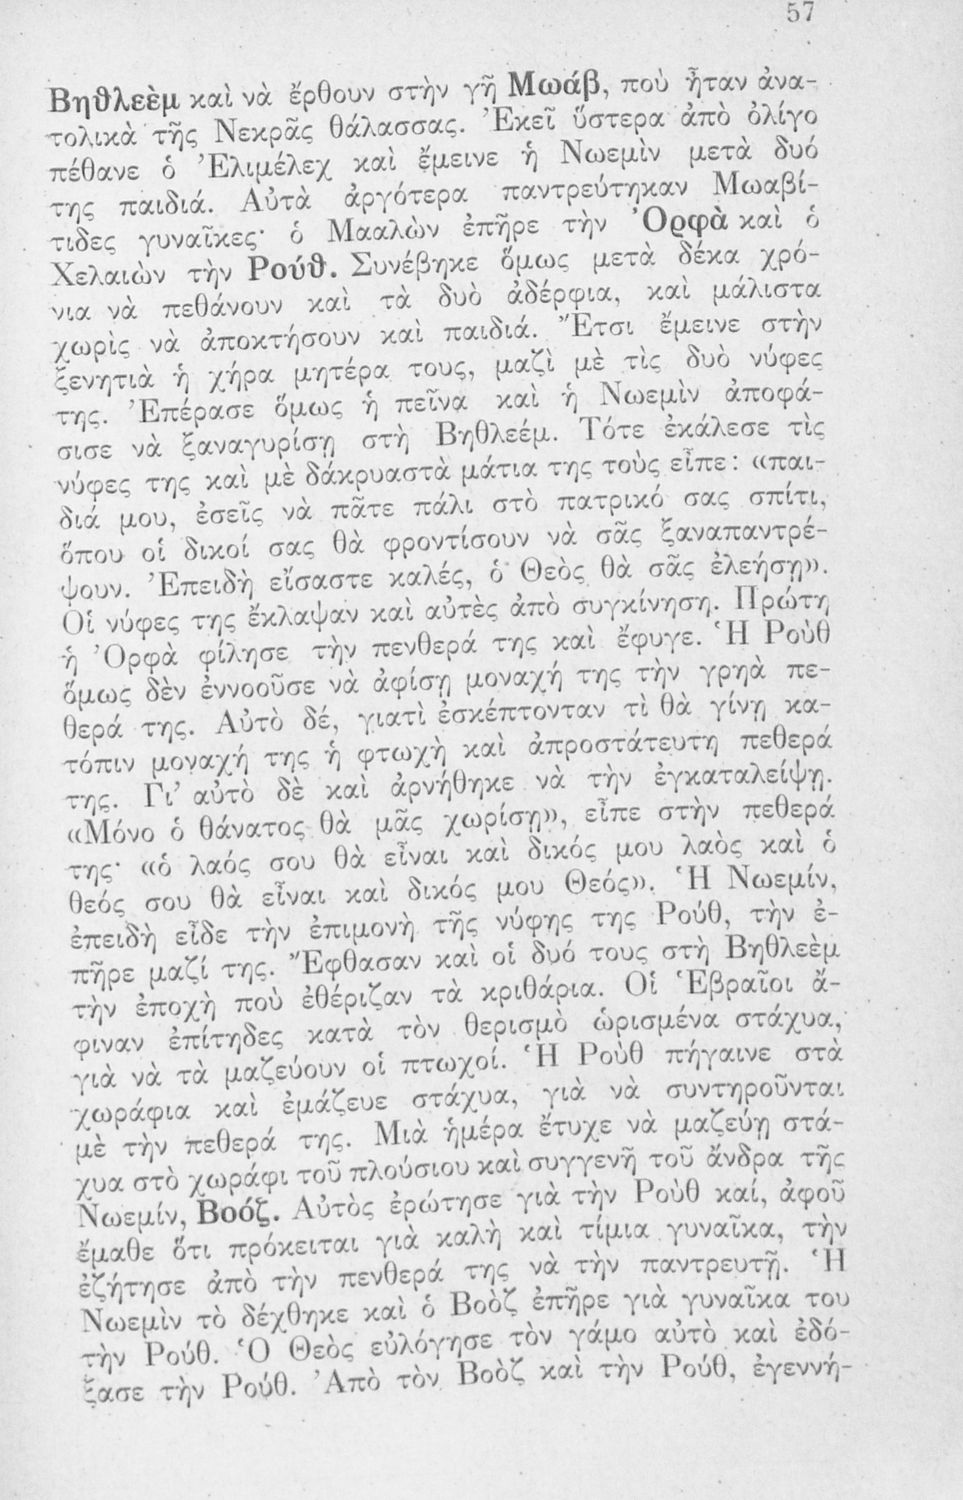 57
Βηθλεὲμ καὶ νὰ ἔρθουν στὴν γῆ Μωάβ, ποὺ ἦταν ἀνα-
τολικὰ τῆς Νεκρᾶς θάλασσας. Ἐκεῖ ὕστερα ἀπὸ ὀλίγο
πέθανε ὁ Ἐλιμέλεχ καὶ ἔμεινε ἡ Νωεμὶν μετὰ δυό
της παιδιά. Αὐτὰ ἀργότερα παντρεύτηκαν Μωαβί-
τιδες γυναῖκες· ὁ Μααλὼν ἐπῆρε τὴν Ὀρφὰ καὶ ὁ
Χελαιὼν τὴν Ρούθ. Συνέβηκε ὅμως μετὰ δέκα χρό-
νια νὰ πεθάνουν καὶ τὰ δυὸ ἀδέρφια, καὶ μάλιστα
χωρὶς νὰ ἀποκτήσουν καὶ παιδιά. Ἔτσι ἔμεινε στὴν
ξενητιὰ ἡ χήρα μητέρα τους, μαζὶ μὲ τὶς δυὸ νύφες
της. Ἐπέρασε ὅμως ἡ πεῖνα καὶ ἡ Νωεμὶν ἀποφά-
σισε νὰ ξαναγυρίσῃ στὴ Βηθλεέμ. Τότε ἐκάλεσε τὶς
νύφες της καὶ μὲ δάκρυαστὰ μάτια της τοὺς εἶπε: «παι-
διά μου, ἐσεῖς νὰ πᾶτε πάλι στὸ πατρικό σας σπίτι,
ὅπου οἱ δικοί σας θὰ φροντίσουν νὰ σᾶς ξαναπαντρέ-
ψουν. Ἐπειδὴ εἴσαστε καλές, ὁ Θεὸς θὰ σᾶς ἐλεήσῃ».
Οἱ νύφες της ἔκλαψαν καὶ αὐτὲς ἀπὸ συγκίνηση. Πρώτη
ἡ Ὀρφὰ φίλησε τὴν πενθερά της καὶ ἔφυγε. Ἡ Ροὺθ
ὅμως δὲν ἐννοοῦσε νὰ ἀφίσῃ μοναχή της τὴν γρηὰ πε-
θερά της. Αὐτὸ δέ, γιατὶ ἐσκέπτονταν τὶ θὰ γίνῃ κα-
τόπιν μοναχή της ἡ φτωχὴ καὶ ἀπροστάτευτη πεθερά
της. Γι’ αὐτὸ δὲ καὶ ἀρνήθηκε νὰ τὴν ἐγκαταλείψῃ.
«Μόνο ὁ θάνατος θὰ μᾶς χωρίσῃ», εἶπε στὴν πεθερά
της· «ὁ λαός σου θὰ εἶναι καὶ δικός μου λαὸς καὶ ὁ
θεός σου θὰ εἶναι καὶ δικός μου Θεός». Ἡ Νωεμίν,
ἐπειδὴ εἶδε τὴν ἐπιμονὴ τῆς νύφης της Ρούθ, τὴν ἐ-
πῆρε μαζί της. Ἔφθασαν καὶ οἱ δυό τους στὴ Βηθλεὲμ
τὴν ἐποχὴ ποὺ ἐθέριζαν τὰ κριθάρια. Οἱ Ἑβραῖοι ἄ-
φιναν ἐπίτηδες κατὰ τὸν θερισμὸ ὡρισμένα στάχυα,
γιὰ νὰ τὰ μαζεύουν οἱ πτωχοί. Ἡ Ροὺθ πήγαινε στὰ
χωράφια καὶ ἐμάζευε στάχυα, γιὰ νὰ συντηροῦνται
μὲ τὴν πεθερά της. Μιὰ ἡμέρα ἔτυχε νὰ μαζεύῃ στά-
χυα στὸ χωράφι τοῦ πλούσιου καὶ συγγενῆ τοῦ ἄνδρα τῆς
Νωεμίν, Βοόζ. Αὐτὸς ἐρώτησε γιὰ τὴν Ροὺθ καί, ἀφοῦ
ἔμαθε ὅτι πρόκειται γιὰ καλὴ καὶ τίμια γυναῖκα, τὴν
ἐζήτησε ἀπὸ τὴν πενθερά της νὰ τὴν παντρευτῇ. Ἡ
Νωεμὶν τὸ δέχθηκε καὶ ὁ Βοὸζ ἐπῆρε γιὰ γυναῖκα του
τὴν Ρούθ. Ὁ Θεὸς εὐλόγησε τὸν γάμο αὐτὸ καὶ ἐδό-
ξασε τὴν Ρούθ. Ἀπὸ τὸν Βοὸζ καὶ τὴν Ρούθ, ἐγεννή-